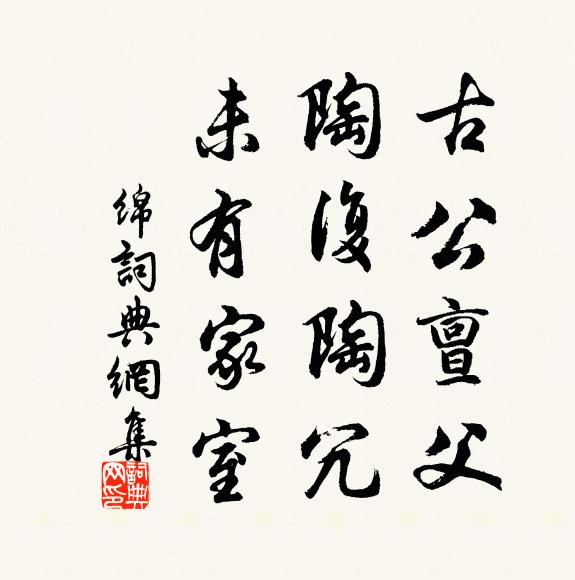 古公亶父
陶復陶冗
未有家室
绵詞典網集
詞典网印